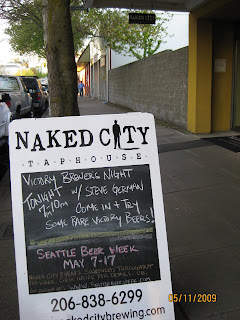 NAKED CITY
NAKED CITY
TAPHOUSE
VICTORY BREWERS NIGHT
TONIGHT W/ STEVE GERMAN
7-10PM COME IN & TRY
SOME RARE VICTORY BEERS!
SEATTLE BEER WEEK
MAY 7-17
206-838-6299
nakedcitybrewing.com
05/11/2009